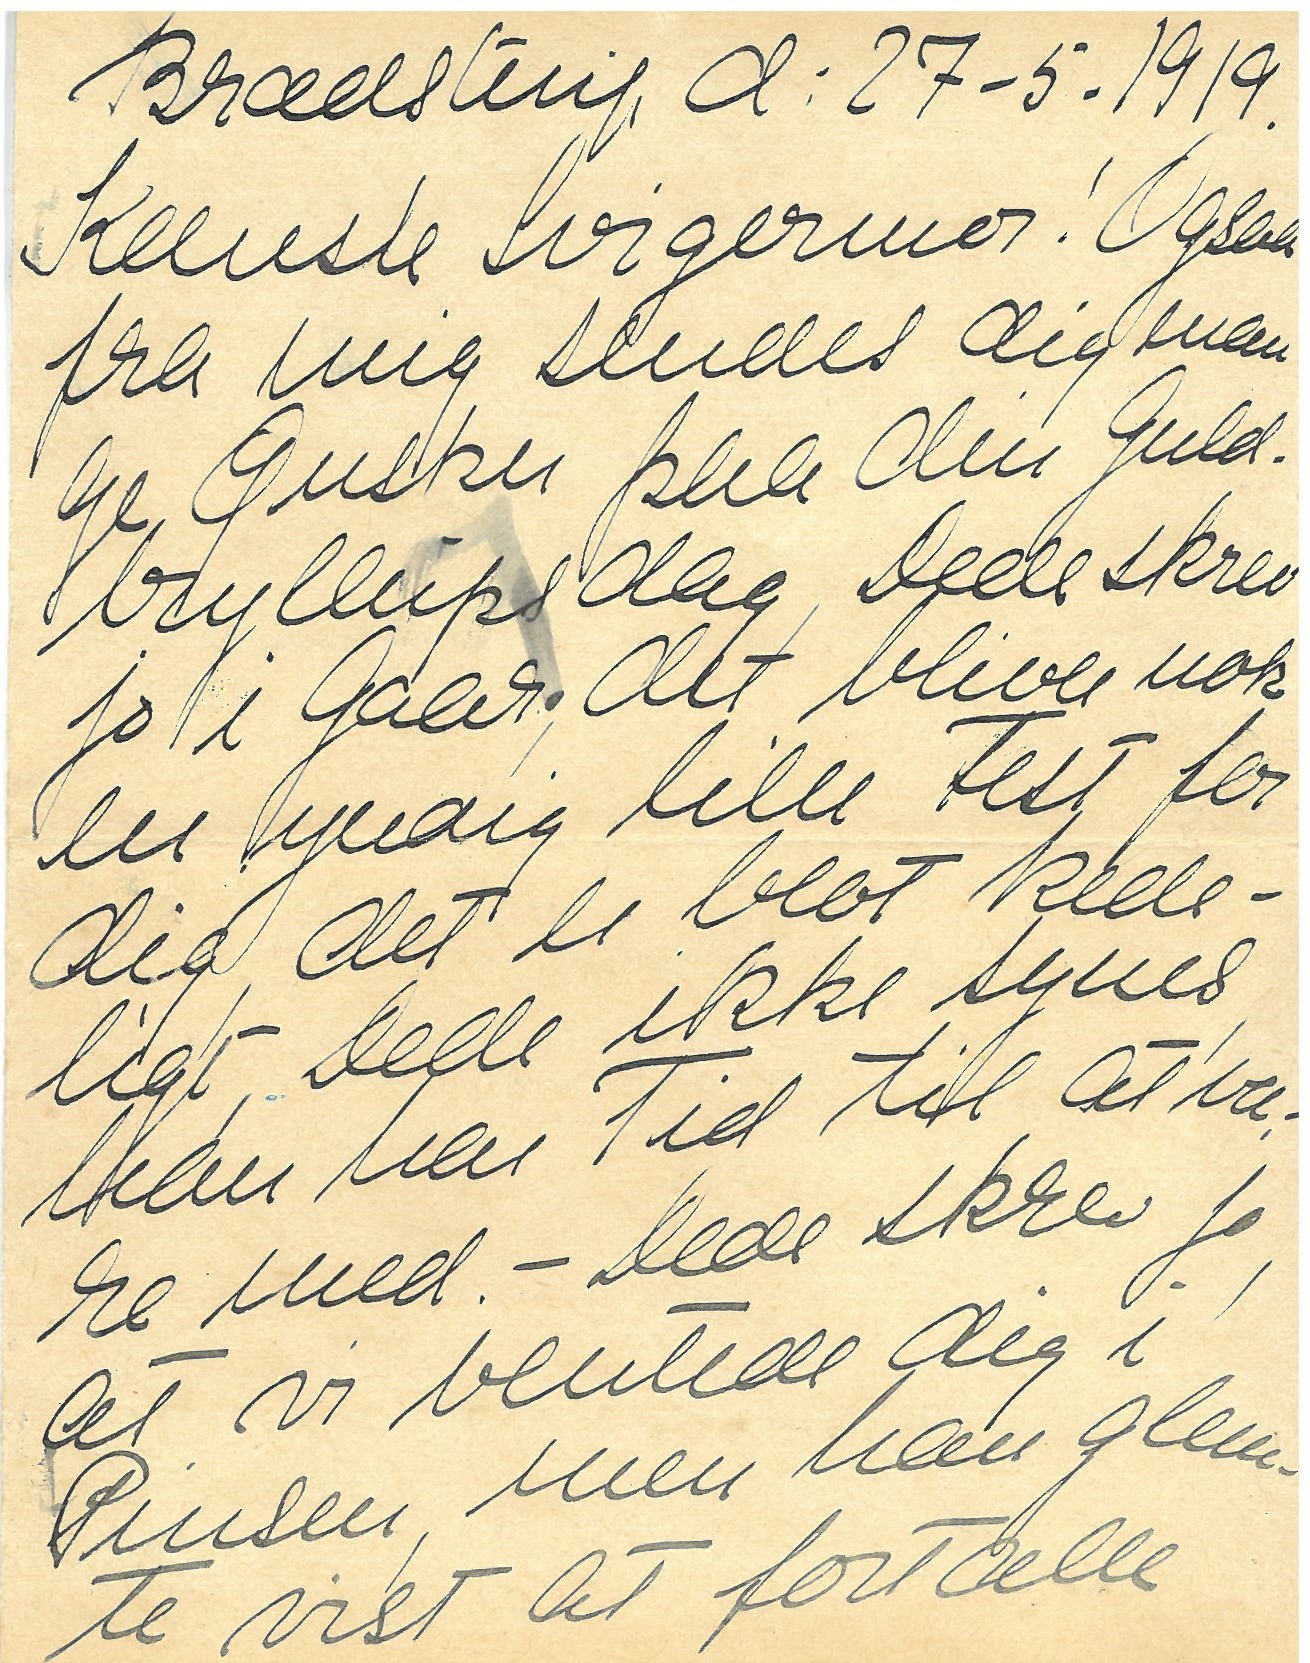 Brædstrup, d: 27-5-1919.
Kæreste Svigermor! Ogsaa
fra mig sendes dig man
ge Ønsker paa din Guld-
bryllupsdag, Dede skrev
jo i Gaar, det bliver nok
en yndig lille Fest for
dig, det er blot kede-
ligt, Dede ikke synes,
han har Tid til at væ-
re med. - Dede skrev jo,
at vi ventede dig i
Pinsen, men han glem-
te vist at fortælle